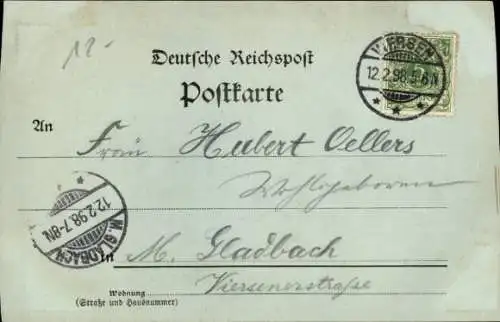 12-
Deutsche Reichspost
Postkarte
VIERSEN
12.2.98.5-6N
An
Frau Hubert Oellers
Wohlgeboren
M.GLADBACH
12.2.98.7-8N
in M. Gladbach
Viersenerstraße
Wohnung
(Straße und Hausnummer)